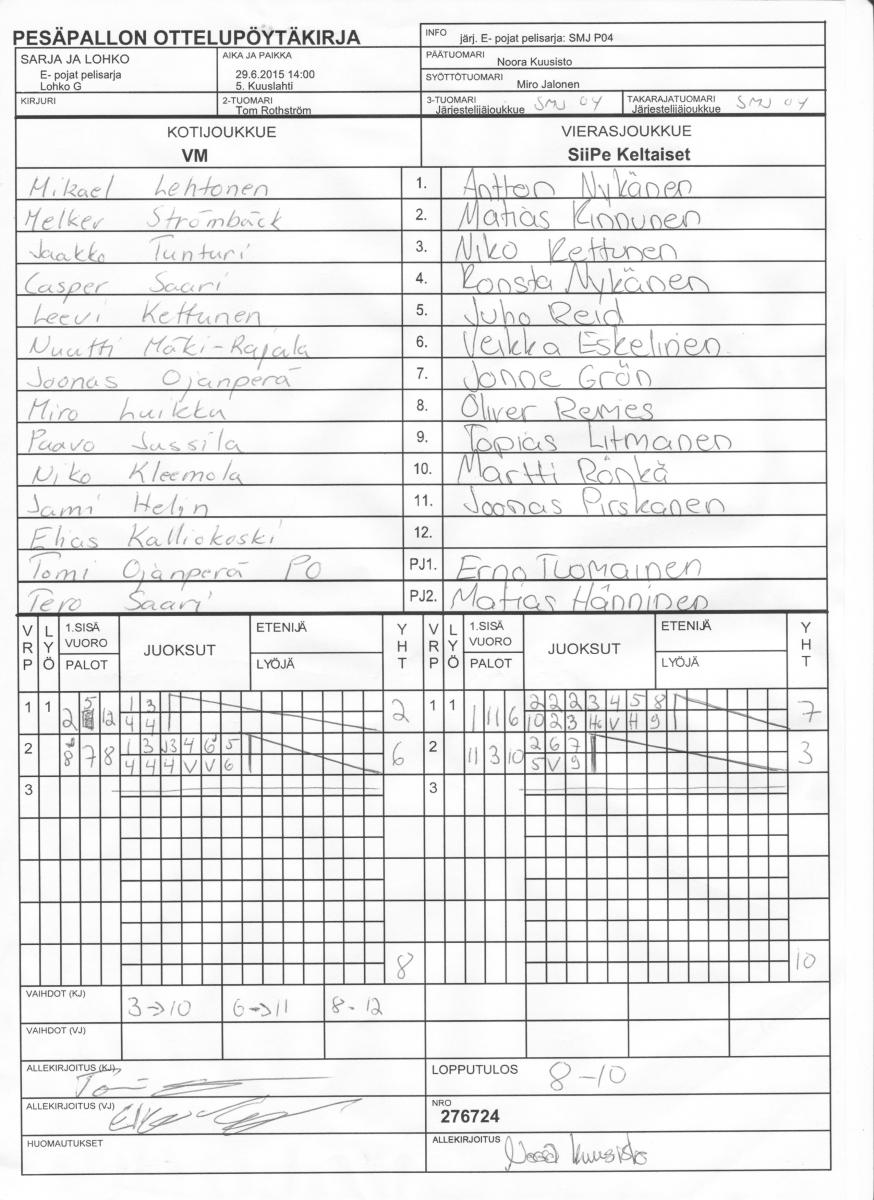 PESÄPALLON OTTELUPÖYTÄKIRJA
INFO järj. E- pojat pelisarja: SMJ P04
SARJA JA LOHKO
E- pojat pelisarja
Lohko G
AIKA JA PAIKKA
29.6.2015 14:00
5. Kuuslahti
PÄÄTUOMARI
Noora Kuusisto
SYÖTTÖTUOMARI
Miro Jalonen
KIRJURI
2-TUOMARI
Tom Rothström
3-TUOMARI
Järjestelijäjoukkue SMJ 04
TAKARAJATUOMARI
Järjestelijäjoukkue SMJ 04
KOTIJOUKKUE
VM
VIERASJOUKKUE
SiiPe Keltaiset
Mikael Lehtonen 1. Antton Nykänen
Melker Strömbäck 2. Matias Kinnunen
Jaakko Tunturi 3. Niko Kettunen
Casper Saari 4. Konsta Nykänen
Leevi Kettunen 5. Juho Reid
Nuutti Mäki-Rajala 6. Veikka Eskelinen
Joonas Ojanperä 7. Jonne Grön
Miro Luikku 8. Oliver Remes
Paavo Jussila 9. Topias Litmanen
Niko Kleemola 10. Martti Rönkä
Jami Helin 11. Joonas Pirskanen
Elias Kalliokoski 12.
Tomi Ojanperä PO PJ1. Erno Tuomainen
Tero Saari PJ2. Matias Hänninen
VRP LYÖ 1.SISÄ VUORO PALOT JUOKSUT ETENIJÄ LYÖJÄ YHT VRP LYÖ 1.SISÄ VUORO PALOT JUOKSUT ETENIJÄ LYÖJÄ YHT
1 1 2 5 12 1 3 2 1 1 1 11 6 2 2 2 3 4 5 8 7
4 4 10 2 3 H V H 9
2 8 7 8 1 3 3 4 6 5 6 2 11 3 10 2 6 7 3
4 4 4 V V 6 5 V 9
3 3
8 10
VAIHDOT (KJ) 3→10 6→11 8-12
VAIHDOT (VJ)
ALLEKIRJOITUS (KJ)
LOPPUTULOS 8-10
ALLEKIRJOITUS (VJ)
NRO
276724
HUOMAUTUKSET
ALLEKIRJOITUS Noora Kuusisto